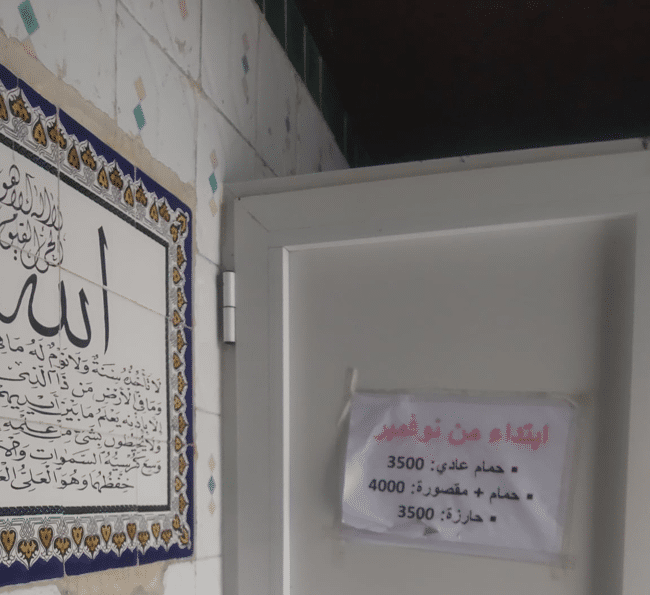 لا إله إلا هو
الحي القيوم
الله
لا تأخذه سنة ولا نوم له ما في
وما في الأرض من ذا الذي
إلا بإذنه يعلم ما بين أيديهم
ولا يحيطون بشيء من علمه
وسع كرسيه السموات والأ
حفظهما وهو العلي
ابتداء من نوفمبر
▪ حمام عادي: 3500
▪ حمام + مقصورة: 4000
▪ حارزة: 3500